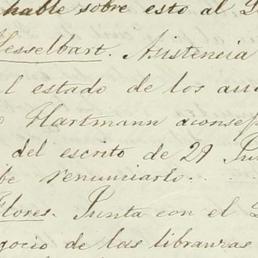 hable sobre esto al
Hesselbart. Asistencia
el estado de los
Hartmann
del escrito de 29
renunciarlo.
Flores. Junta con el
negocio de las libranzas